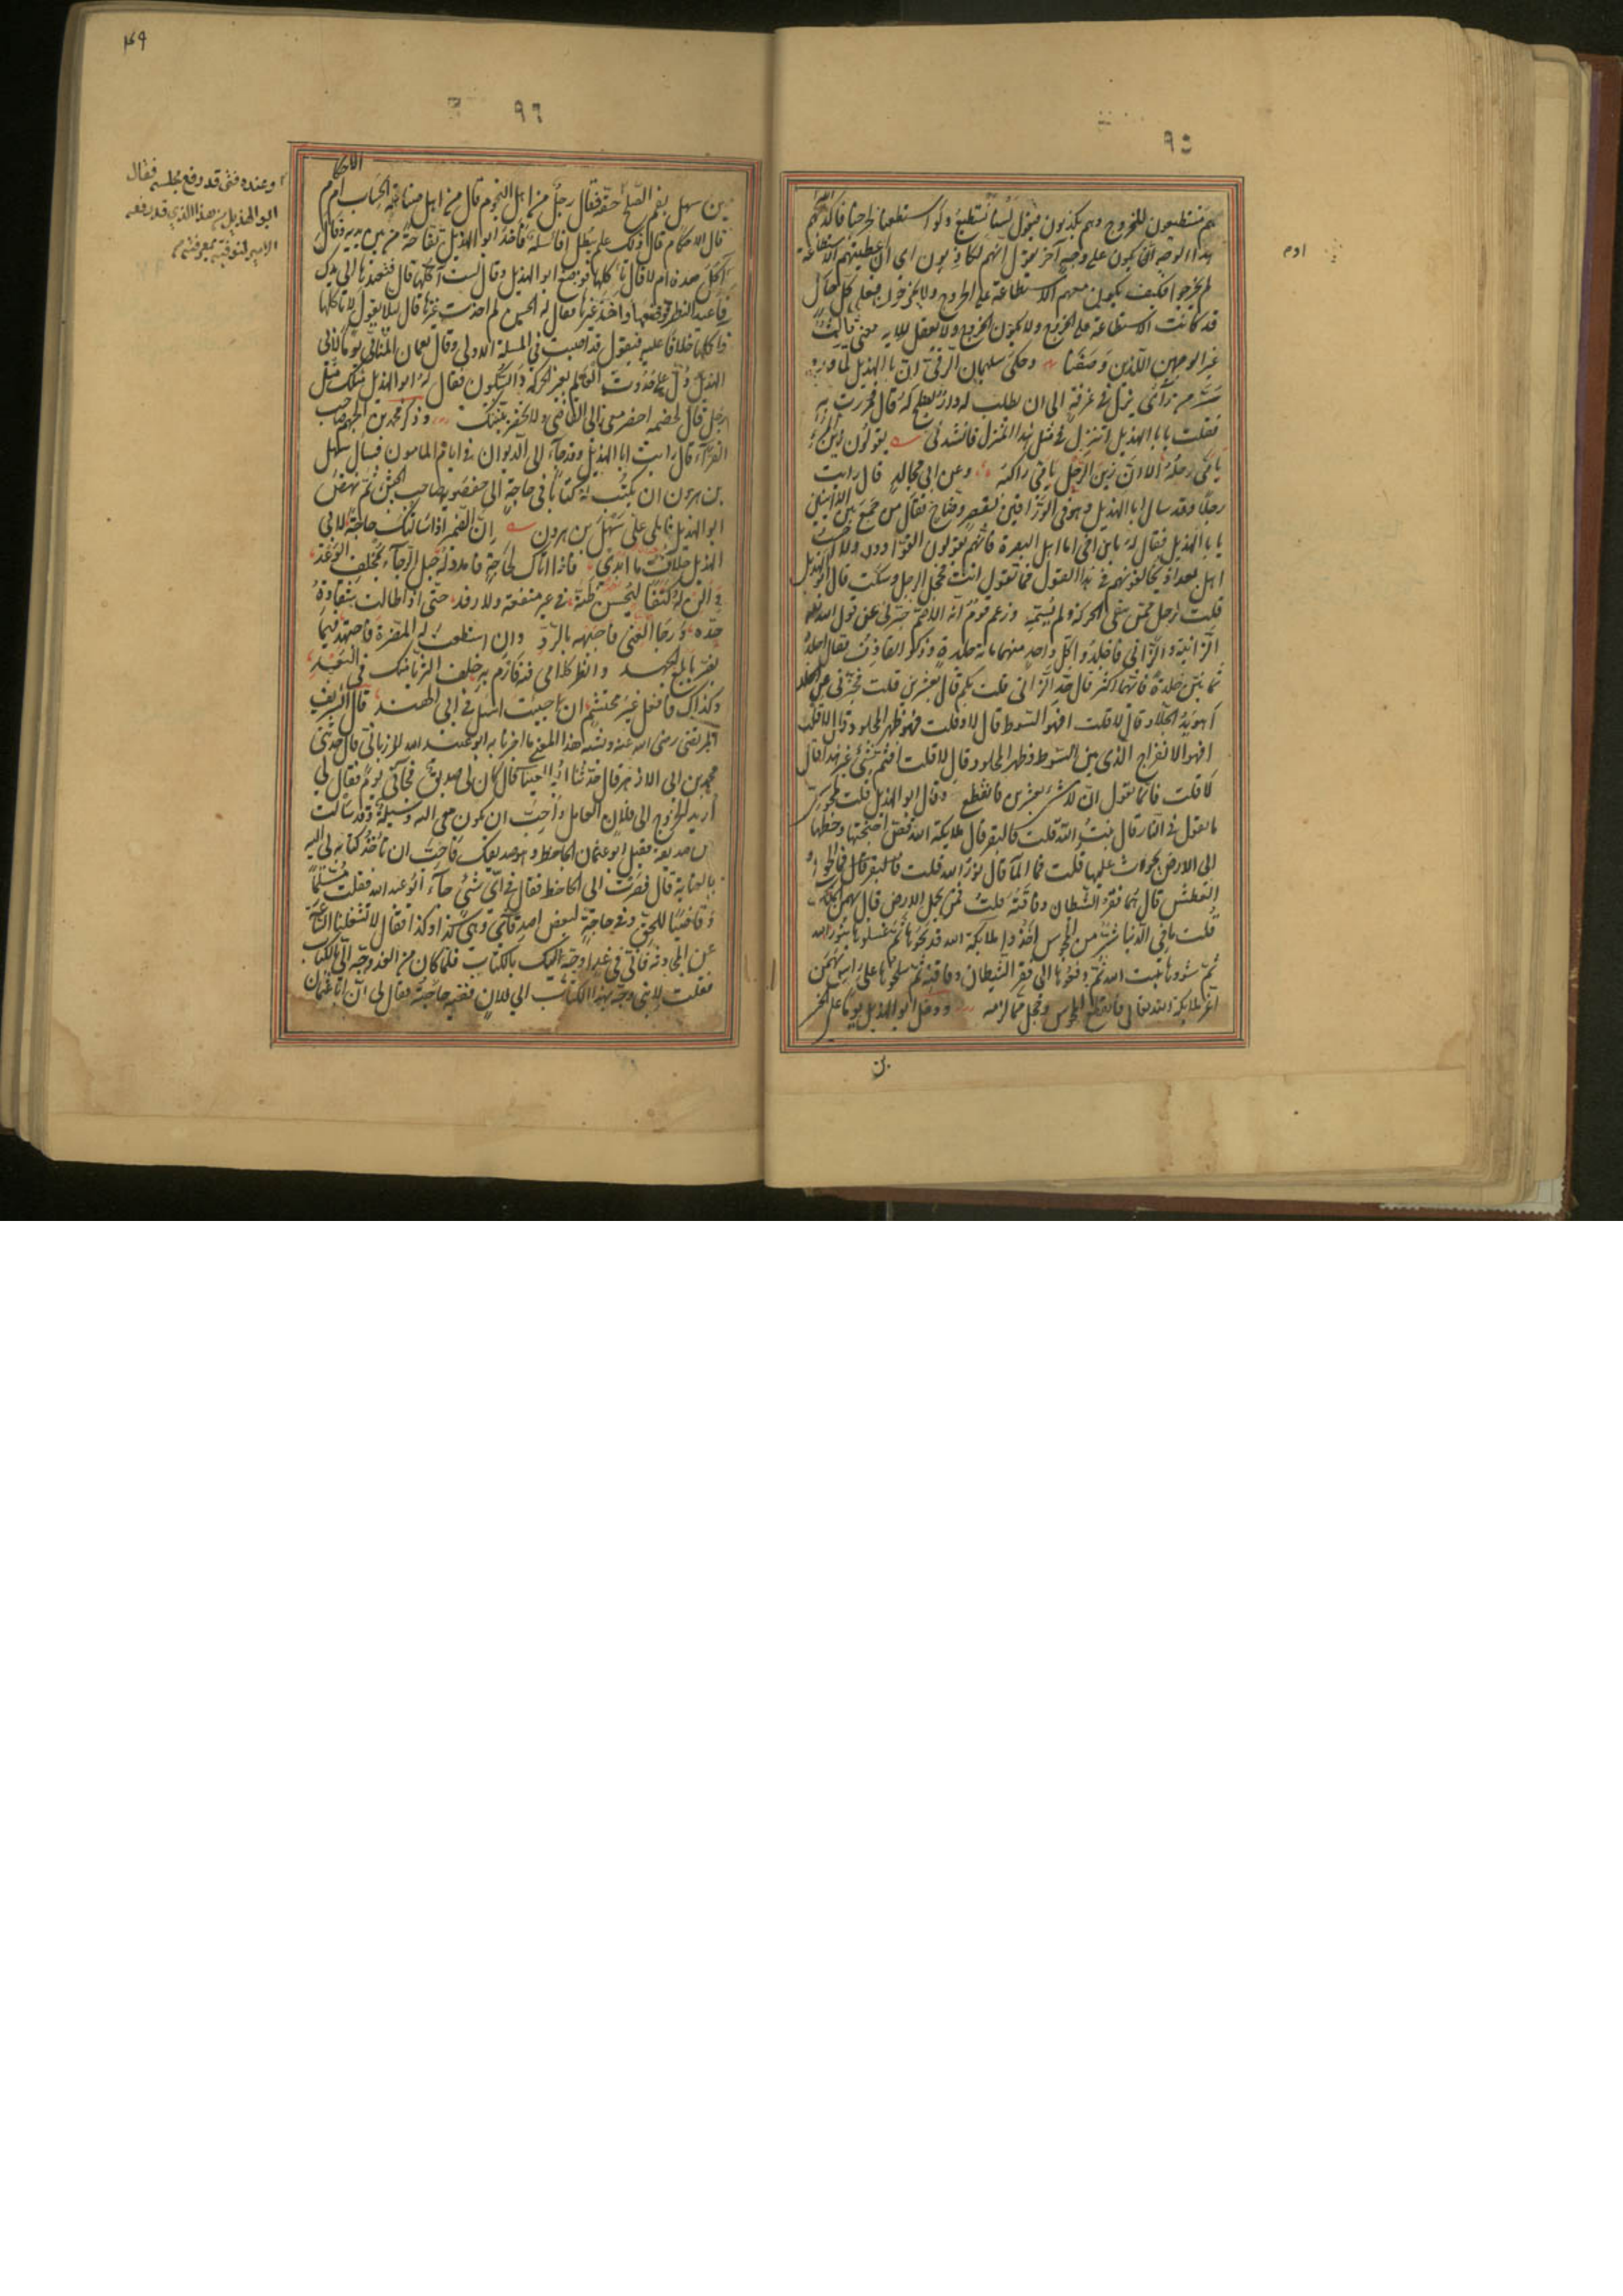 ٩٥
هم مستطيعون للخروج وهم يكذبون فيقول لسنا نستطيع ولو استطعنا لخرجنا فاكذبهم الله
هذا الوجه ان يكون على وجه آخر يقول انهم لكاذبون اى ان اعطيتهم الاستطاعة
لم يخرجوا فكيف يكون معهم الاستطاعة على الخروج ولا يخرجون فعلى كل حال
قد كانت الاستطاعة على الخروج ولا يكون الخروج ولا يعقل للاية معنى ثالث
غير الوجهين اللذين وصفنا وحكى سليمان الرقى ان ابا الهذيل لما ورد
سر من راى نزل فى غرفة الى ان يطلب له دار تصلح له قال فمررت به
فقلت يا ابا الهذيل اتنزل فى مثل هذا المنزل فانشدنى يقولون زين المرء
يا مى رحله الا ان زين الرحل يا مى راكبه وعن ابى مجالد قال رايت
رجلا وقد سال ابا الهذيل وهو فى الوراقين بقصر وضاح فقال من جمع بين الزانيين
يا ابا الهذيل فقال له يا ابن اخى اما اهل البصرة فانهم يقولون القوادون ولا احسب
اهل بغداد يخالفونهم فى هذا القول فما تقول انت فخجل الرجل وسكت قال ابو الهذيل
قلت لرجل ممن ينفى الحركة ولم يسمه وزعم قوم انه الاصم خبرنى عن قول الله تعالى
الزانية والزانى فاجلدوا كل واحد منهما مائة جلدة وذكر القاذف فقال اجلدوهم
ثمانين جلدة فايهما اكثر قال حد الزانى قلت بكم قال بعشرين قلت فخبرنى عن الجلد
اهو يد الجلاد قال لا قلت افهو السوط قال لا قلت فهو ظهر المجلود قال لا قلت
افهو الانفراج الذى بين السوط وظهر المجلود قال لا قلت افثم شىء غير هذا قال
لا قلت فانما تقول ان لا شىء اكثر من لا شىء بعشرين فانقطع وقال ابو الهذيل قلت لمجوسى
ما تقول فى النار قال بنت الله قلت فالبقر قال ملايكة الله قص اجنحتها وحطها
الى الارض يحرث عليها قلت فما الماء قال نور الله قلت فما الجوع
والعطش قال هما فقر الشيطان وفاقته قلت فمن يحمل الارض قال بهمن الملك
قلت ما فى الدنيا شر من المجوس اخذوا ملايكة الله فذبحوها ثم غسلوها بنور الله
ثم شووها ببنت الله ثم دفعوها الى فقر الشيطان وفاقته ثم سلحوها على راس بهمن
اعز ملايكة الله تعالى فانقطع المجوسى وخجل مما لزمه ودخل ابو الهذيل يوما على الحسن
بن
ادم
٩٦
٤٩
بن سهل بفم الصلح فقال رجل من اهل النجوم قال من اهل صناعة الحساب ام من الاحكام
قال الاحكام قال ذلك علم يبطل افاسئله فاخذ ابو الهذيل تفاحة من بين يديه وقال
آكل هذه ام لا قال تاكلها فوضعها ابو الهذيل وقال لست آكلها قال فتعيدها الى يدك
فاعيد النظر فوضعها واخذ غيرها فقال له الحسن لم اخذت غيرها قال ليلا يقول لا تاكلها
فآكلها خلافا عليه فيقول قد اصبت فى المسئلة الاولى وقال نعمان المنانى يوما لابى
الهذيل دل على حدوث العالم بغير الحركة والسكون فقال له ابو الهذيل مثلك مثل
رجل قال لخصمه احضر معى الى القاضى ولا تحضر بينتك وذكر محمد بن الجهم صاحب
الفراء قال رايت ابا الهذيل وقد جاء الى الديوان فى ايام المامون فسال سهل
بن هرون ان يكتب له كتابا فى حاجة الى حفصويه صاحب الجيش ثم نهض
ابو الهذيل فاملى على سهل بن هرون ان الضمير اذا سالتك حاجة لابى
الهذيل خلاف ما ابدى فاذا اتاك لحاجة فامدد له حبل الرجاء بمخلف الوعد
والن له كنفا ليحسن ظنه فى غير منفعة ولا رفد حتى اذا طالت شقاوة
جده ورجا الغنى فاجبهه بالرد وان استطعت له المضرة فاجتهد فيما
يضر بابلغ الجهد وانظر كلامى فيه فارم به خلف الثريا منك فى البعد
وكذاك فافعل غير محتشم ان جئت اسئل فى ابى الهند قال الشريف
المرتضى رضى الله عنه ويشبه هذا المعنى ما اخبرنا به ابو عبيد الله المرزبانى قال حدثنى
محمد بن ابى الازهر قال حدثنا ابو العينا قال كان لى صديق فجائنى يوما فقال لى
اريد الخروج الى فلان العامل واحب ان يكون معى اليه وسيلة وقد سالت
من صديقه فقيل ابو عثمان الجاحظ وهو صديقك فاحب ان تاخذ كتابه لى اليه
بالعناية قال فصرت الى الجاحظ فقال فى اى شىء جاء ابو عبد الله فقلت مسلما
وقاضيا للحق وفى حاجة لبعض اصدقائى وهى كذا وكذا فقال لا تشغلنا الساعة
عن المحادثة فانى فى غد اوجه اليك بالكتاب فلما كان من الغد وجه الى بالكتاب
فقلت لابنى وجه بهذا الكتاب الى فلان ففيه حاجته فقال لى ان ابا عثمان
وعنده فتى قد رفع مجلسه فقال
ابو الهذيل من هذا الذى قد رفعه
الامير لنوفيه بمعرفته